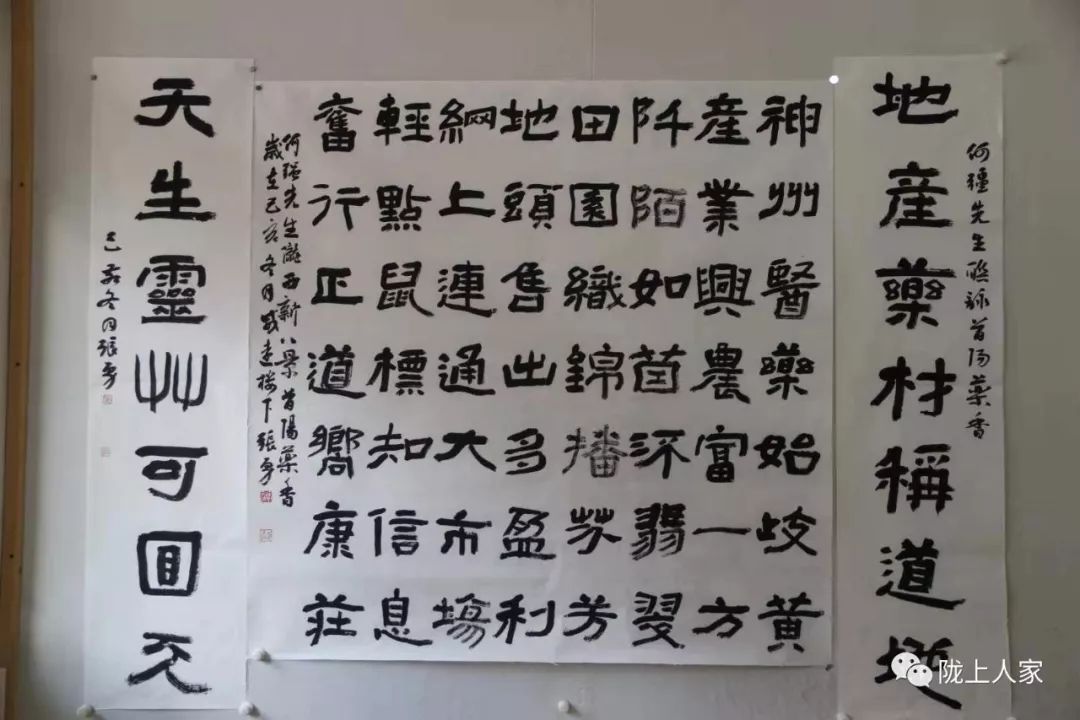 地產藥材稱道地
何疆先生聯詠首陽藥香
神州醫藥始岐黃
產業興農富一方
阡陌如茵環翡翠
田園織錦播芬芳
地頭售出多盈利
網上連通大市場
輕點鼠標知信息
奮行正道嚮康莊
何疆先生隴西新八景首陽藥香
歲在己亥冬月樓下張勇
天生靈艸可回天
己亥冬月張勇
陇上人家